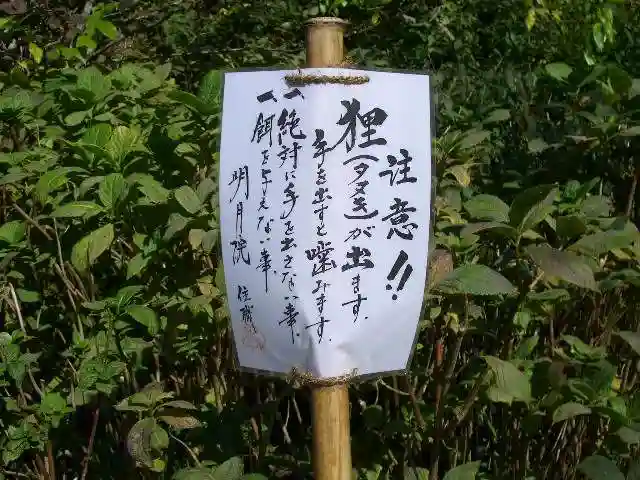 注意!!
狸(タヌキ)が出ます。
手を出すと噛みます。
一、絶対に手を出さない事、
一、餌を与えない事、
明月院 住職